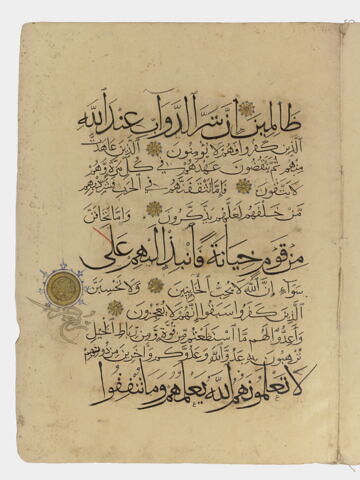 ظَالِمِينَ اِنَّ شَرَّ الدَّوَابِّ عِنْدَ اللهِ
الَّذِينَ كَفَرُوا فَهُمْ لَا يُؤْمِنُونَ الَّذِينَ عَاهَدْتَ
مِنْهُمْ ثُمَّ يَنْقُضُونَ عَهْدَهُمْ فِي كُلِّ مَرَّةٍ وَهُمْ
لَا يَتَّقُونَ فَاِمَّا تَثْقَفَنَّهُمْ فِي الْحَرْبِ فَشَرِّدْ بِهِمْ
مَنْ خَلْفَهُمْ لَعَلَّهُمْ يَذَّكَّرُونَ وَاِمَّا تَخَافَنَّ
مِنْ قَوْمٍ خِيَانَةً فَانْبِذْ اِلَيْهِمْ عَلَى
سَوَاءٍ اِنَّ اللهَ لَا يُحِبُّ الْخَائِنِينَ وَلَا تَحْسَبَنَّ
الَّذِينَ كَفَرُوا سَبَقُوا اِنَّهُمْ لَا يُعْجِزُونَ
وَاَعِدُّوا لَهُمْ مَا اسْتَطَعْتُمْ مِنْ قُوَّةٍ وَمِنْ رِبَاطِ الْخَيْلِ
تُرْهِبُونَ بِهِ عَدُوَّ اللهِ وَعَدُوَّكُمْ وَآخَرِينَ مِنْ دُونِهِمْ
لَا تَعْلَمُونَهُمُ اللهُ يَعْلَمُهُمْ وَمَا تُنْفِقُوا